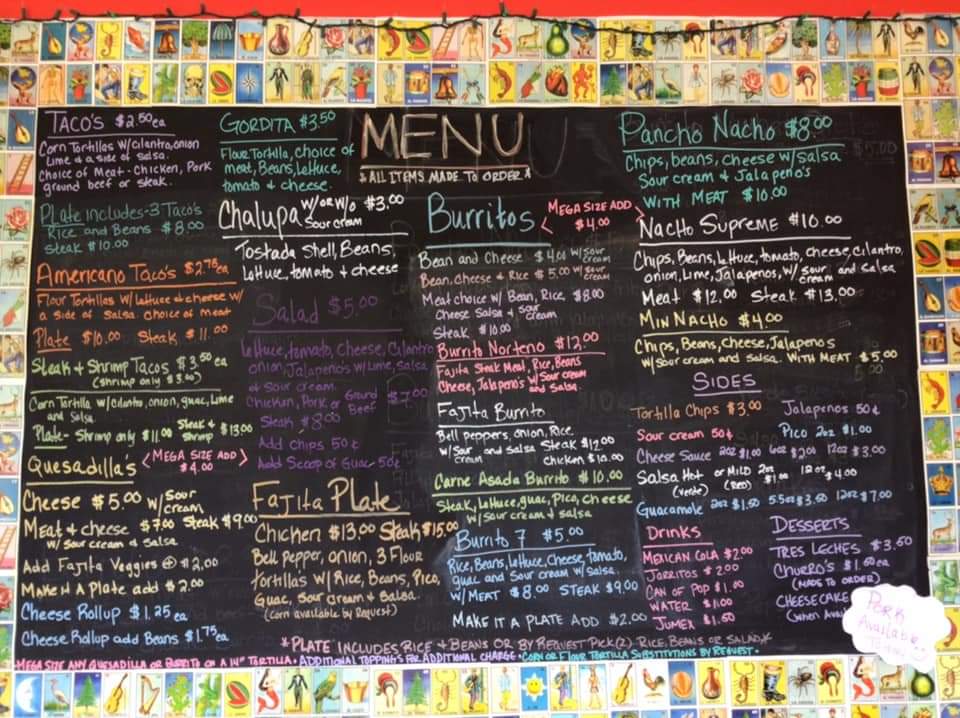 MENU
*ALL ITEMS MADE TO ORDER*
TACO'S $2.50ea
Corn Tortillas w/cilantro, onion
Lime & a side of salsa.
Choice of Meat - Chicken, Pork
ground beef or steak.
Plate includes - 3 Taco's
Rice and Beans $8.00
Steak $10.00
Americano Taco's $2.75ea
Flour Tortillas w/Lettuce & cheese w/
a side of Salsa. choice of meat
Plate $10.00 Steak $11.00
Steak & Shrimp Tacos $3.50 ea
(shrimp only $3.00)
Corn Tortilla w/cilantro, onion, guac, Lime
and Salsa.
Plate - Shrimp only $11.00 Steak & Shrimp $13.00
Quesadilla's <MEGA SIZE ADD $4.00>
Cheese $5.00 w/Sour cream
Meat & cheese $7.00 Steak $9.00
w/Sour cream & Salsa
Add Fajita Veggies $2.00
Make it A Plate add $2.00
Cheese Rollup $1.25 ea
Cheese Rollup add Beans $1.75 ea
GORDITA $3.50
Flour Tortilla, choice of
meat, Beans, Lettuce,
tomato & cheese.
Chalupa w/or w/o Sour cream $3.00
Tostada Shell, Beans,
Lettuce, tomato & cheese
Salad $5.00
Lettuce, tomato, Cheese, Cilantro
onion, Jalapenos w/Lime, Salsa
& Sour cream.
Chicken, Pork or Ground Beef $7.00
Steak $8.00
Add Chips 50¢
Add Scoop of Guac 50¢
Fajita Plate
Chicken $13.00 Steak $15.00
Bell pepper, onion, 3 Flour
tortillas w/ Rice, Beans, Pico,
Guac, Sour cream & Salsa.
(corn available by Request)
Burritos <MEGA SIZE ADD $4.00>
Bean and Cheese $4.00 w/sour cream
Bean, Cheese & Rice $5.00 w/sour cream
Meat choice w/ Bean, Rice, $8.00
Cheese Salsa & Sour cream
Steak $10.00
Burrito Norteno $12.00
Fajita Steak Meat, Rice, Beans
Cheese, Jalapeno's w/Sour cream and Salsa.
Fajita Burrito
Bell peppers, onion, Rice,
w/ Sour cream and Salsa Steak $12.00
Chicken $10.00
Carne Asada Burrito $10.00
Steak, Lettuce, guac, Pico, cheese
w/Sour cream & salsa
Burrito 7 $5.00
Rice, Beans, Lettuce, Cheese, tomato,
guac and Sour cream w/Salsa.
w/MEAT $8.00 STEAK $9.00
MAKE IT A PLATE ADD $2.00
Pancho Nacho $8.00
Chips, beans, cheese w/salsa
Sour cream & Jalapeno's
WITH MEAT $10.00
Nacho Supreme $10.00
Chips, Beans, Lettuce, tomato, cheese, cilantro,
onion, Lime, Jalapenos, w/ sour cream and Salsa
Meat $12.00 Steak $13.00
Mini NACHO $4.00
Chips, Beans, Cheese, Jalapenos
w/Sour cream and Salsa. WITH MEAT $5.00
SIDES
Tortilla Chips $3.00 Jalapenos 50¢
Sour cream 50¢ Pico 2oz $1.00
Cheese Sauce 2oz $1.00 6oz $2.00 12oz $3.00
Salsa Hot (verde) or MILD (RED) 2oz $1.00 12oz $4.00
Guacamole 2oz $1.50 5.5oz $3.50 12oz $7.00
DRINKS
MEXICAN COLA $2.00
JARRITOS $2.00
CAN OF POP $1.00
WATER $1.00
JUMEX $1.50
DESSERTS
TRES LECHES $3.50
CHURRO'S $1.50 ea
(MADE TO ORDER)
CHEESECAKE
(when Avail
PORK
Available
Today
*PLATE INCLUDES RICE & BEANS OR BY REQUEST PICK (2) RICE, BEANS OR SALAD*
MEGA SIZE ANY QUESADILLA OR BURRITO ON A 14" TORTILLA • ADDITIONAL TOPPINGS FOR ADDITIONAL CHARGE • CORN OR FLOUR TORTILLA SUBSTITUTIONS BY REQUEST •